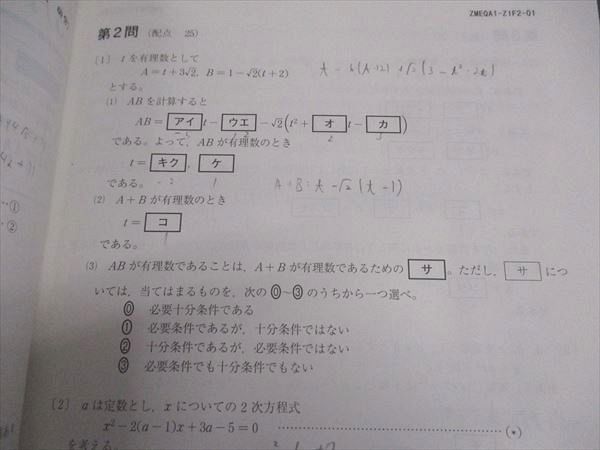 ZMEQA1-Z1F2-01
第2問 (配点 25)
〔1〕 tを有理数として
A=t+3√2, B=1-√2(t+2)
とする。
(1) ABを計算すると
AB=アイt-ウエ-√2(t²+オt-カ)
である。よって，ABが有理数のとき
t=キク, ケ
である。 -2 1
A+B: t-√2(t-1)
(2) A+Bが有理数のとき
t=コ
である。
(3) ABが有理数であることは，A+Bが有理数であるためのサ。ただし，サにつ
いては，当てはまるものを，次の⓪~③のうちから一つ選べ。
⓪ 必要十分条件である
① 必要条件であるが，十分条件ではない
② 十分条件であるが，必要条件ではない
③ 必要条件でも十分条件でもない
〔2〕 aは定数とし，xについての2次方程式
x²-2(a-1)x+3a-5=0 ……………(*)
を考える。
…①
…②